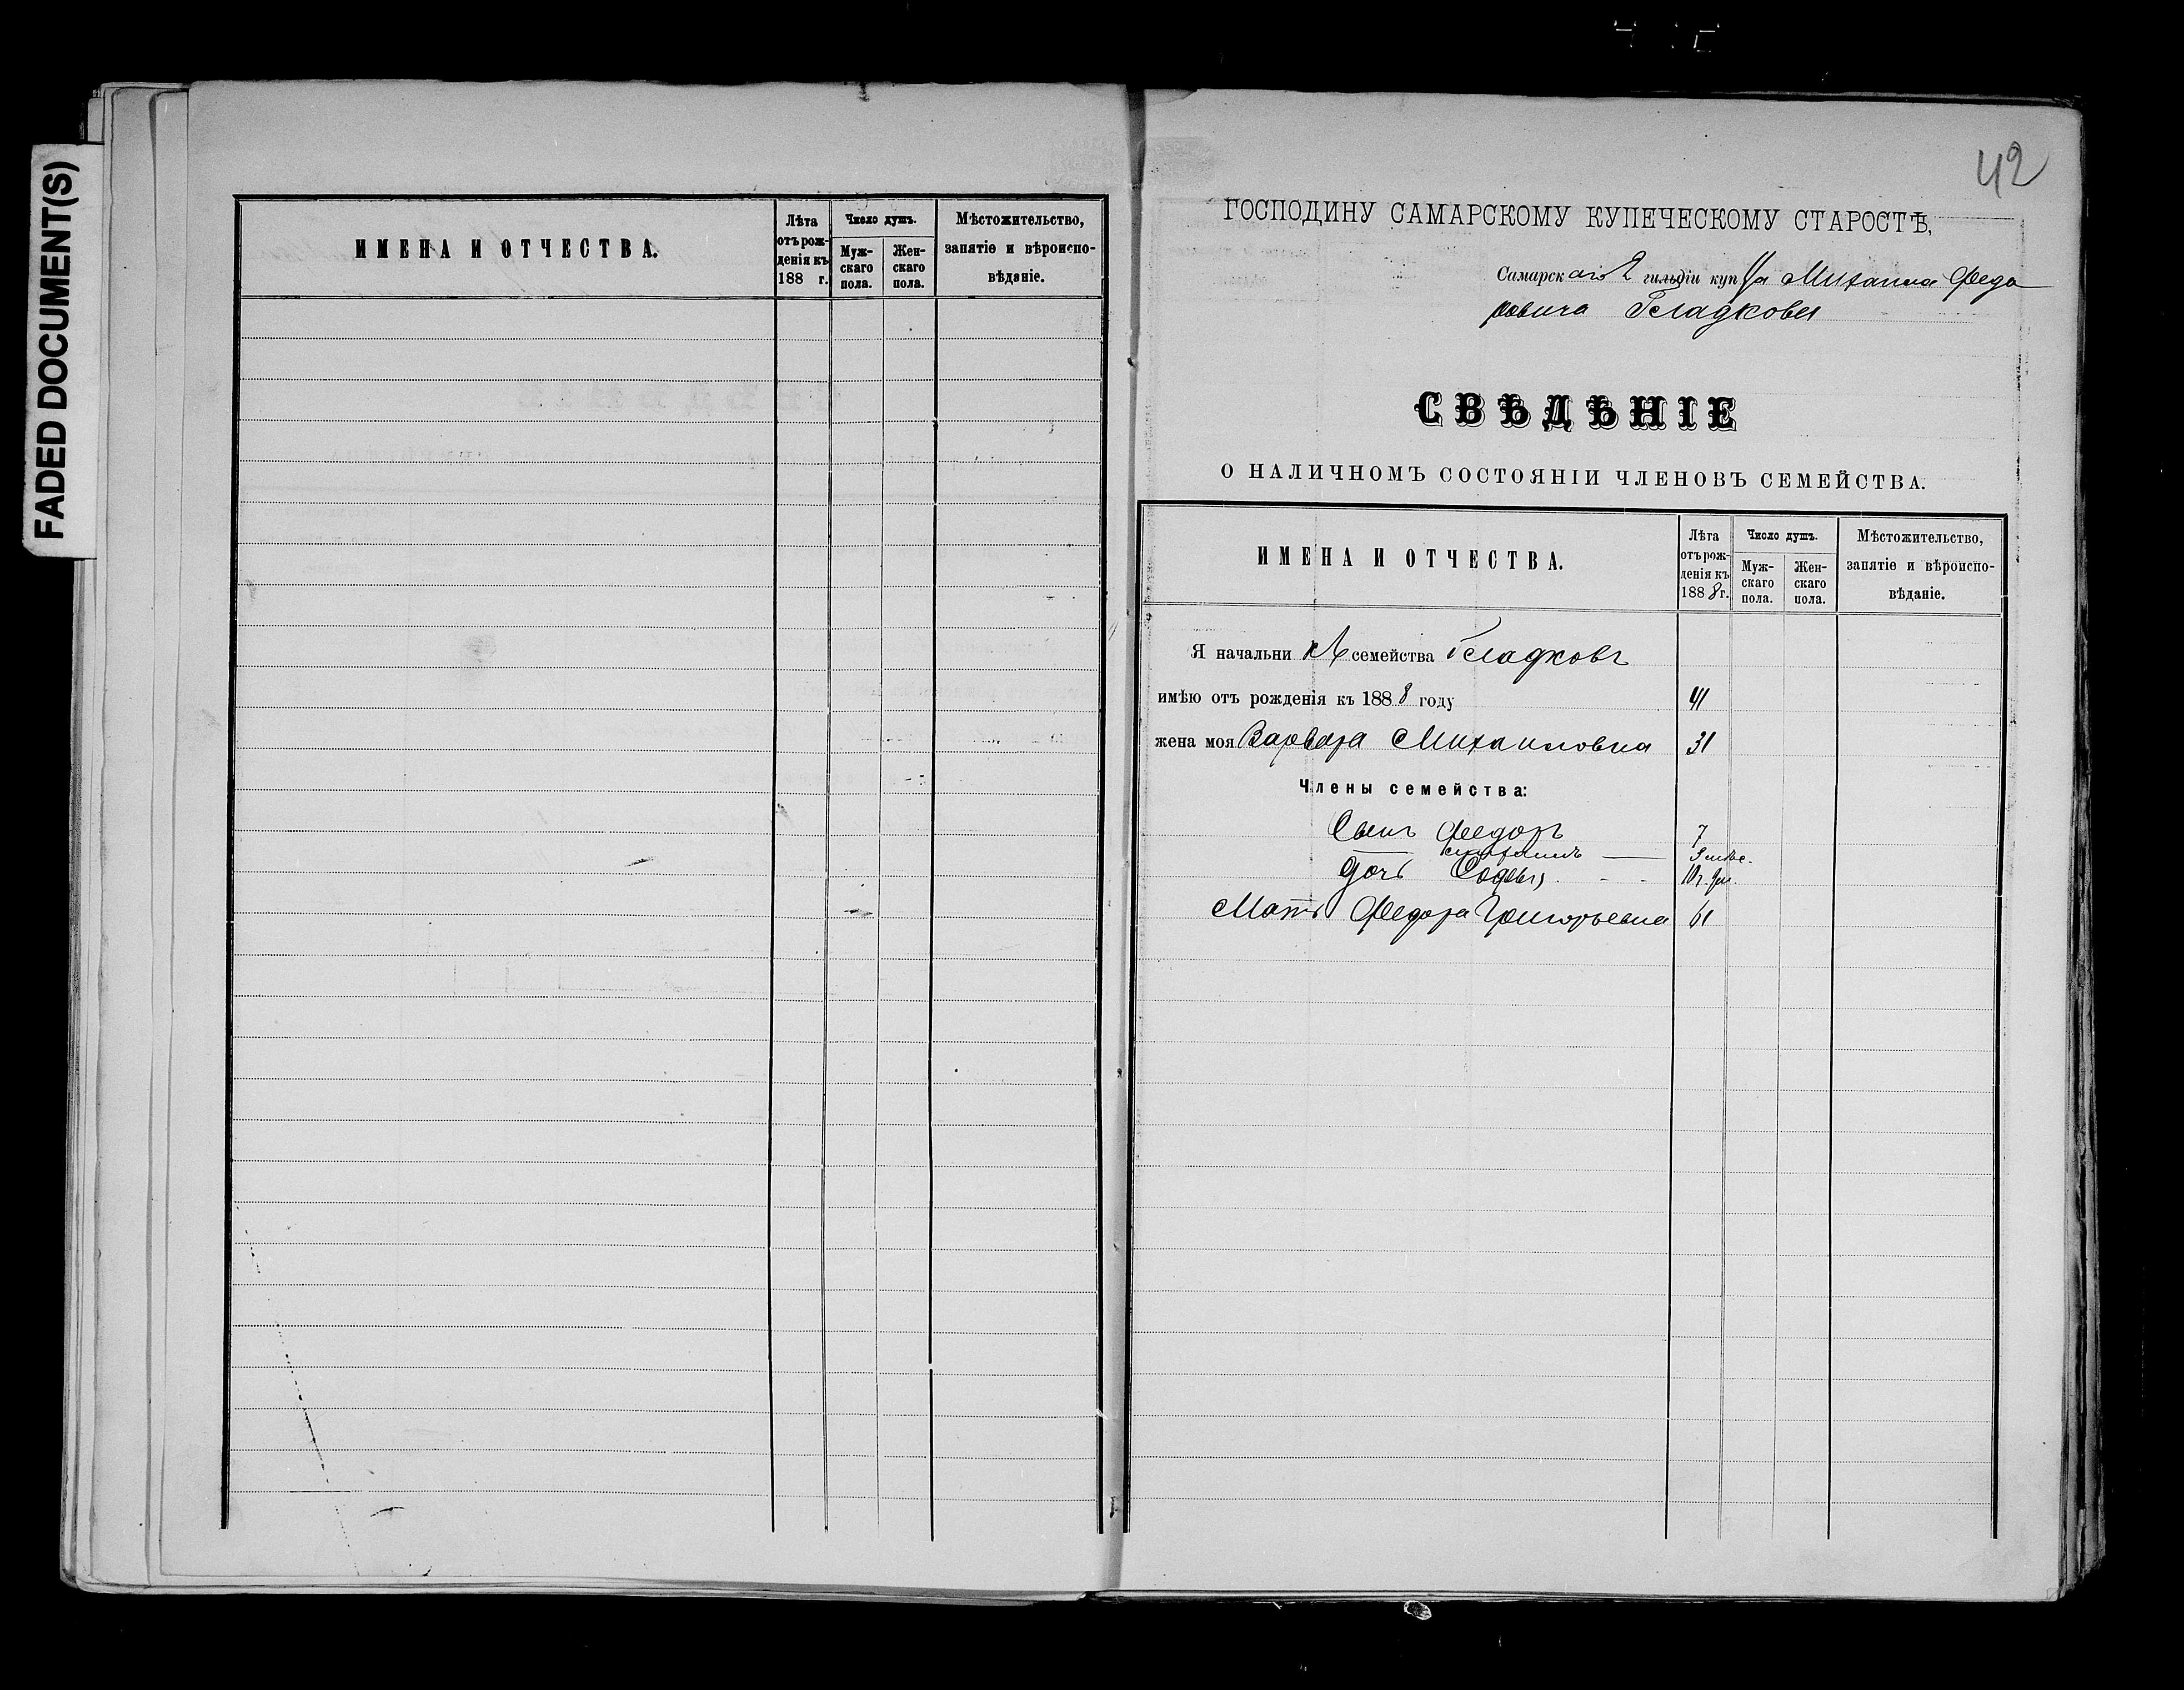 FADED DOCUMENT(S)
ИМЕНА И ОТЧЕСТВА.
Лѣта
отъ рож-
денія къ
188 г.
Число душъ.
Муж-
скаго
пола.
Жен-
скаго
пола.
Мѣстожительство,
занятіе и вѣроиспо-
вѣданіе.
42
ГОСПОДИНУ САМАРСКОМУ КУПЕЧЕСКОМУ СТАРОСТѢ,
Самарскаго 2 гильдіи купца Михаила Федо
ровича Гладкова
СВѢДѢНІЕ
О НАЛИЧНОМЪ СОСТОЯНІИ ЧЛЕНОВЪ СЕМЕЙСТВА.
ИМЕНА И ОТЧЕСТВА.
Лѣта
отъ рож-
денія къ
1888 г.
Число душъ.
Муж-
скаго
пола.
Жен-
скаго
пола.
Мѣстожительство,
занятіе и вѣроиспо-
вѣданіе.
Я начальникъ семейства Гладковъ
имѣю отъ рожденія къ 1888 году 41
жена моя Варвара Михаиловна 31
Члены семейства:
Сынъ Федоръ 7
Михаилъ — 3 мѣс.
Дочь Софья
Мать Федора Григорьевна 61